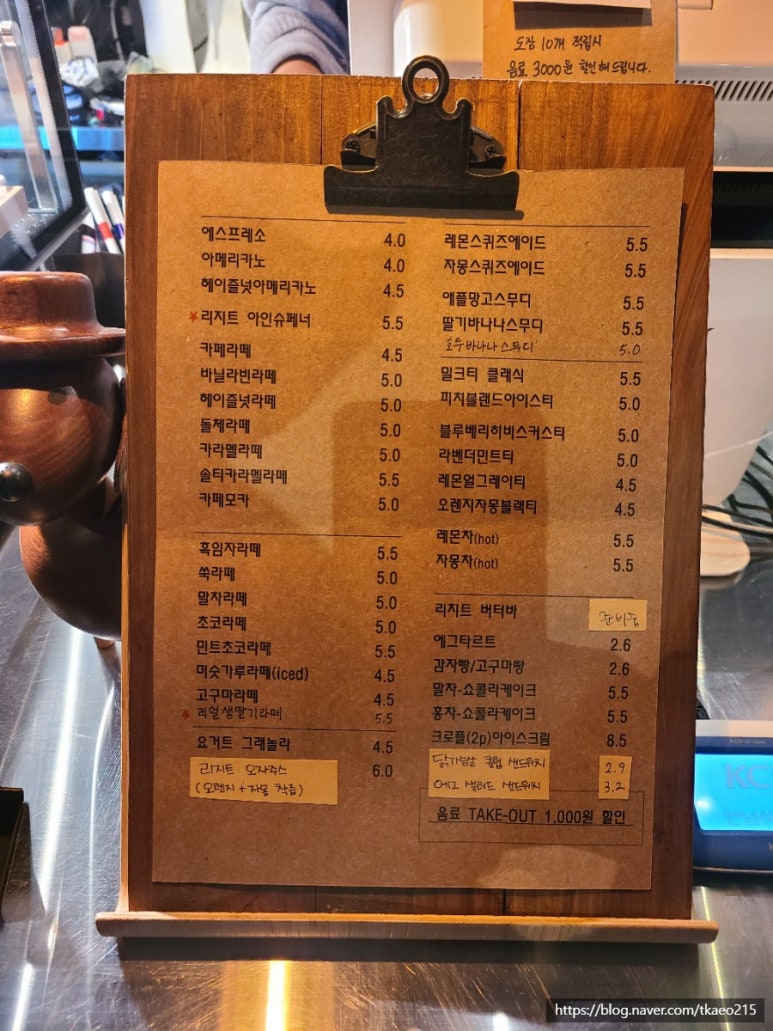 도장 10개 적립시
음료 3000원 할인해드립니다.
에스프레소 4.0
아메리카노 4.0
헤이즐넛아메리카노 4.5
★리지트 아인슈페너 5.5
카페라떼 4.5
바닐라빈라떼 5.0
헤이즐넛라떼 5.0
돌체라떼 5.0
카라멜라떼 5.0
솔티카라멜라떼 5.5
카페모카 5.0
흑임자라떼 5.5
쑥라떼 5.0
말차라떼 5.0
초코라떼 5.0
민트초코라떼 5.5
미숫가루라떼(iced) 4.5
고구마라떼 4.5
★리얼생딸기라떼 5.5
요거트 그래놀라 4.5
리지트 오자주스 6.0
(오렌지+자몽 착즙)
레몬스퀴즈에이드 5.5
자몽스퀴즈에이드 5.5
애플망고스무디 5.5
딸기바나나스무디 5.5
호두바나나스무디 5.0
밀크티 클래식 5.5
피치블랜드아이스티 5.0
블루베리히비스커스티 5.0
라벤더민트티 5.0
레몬얼그레이티 4.5
오렌지자몽블랙티 4.5
레몬차(hot) 5.5
자몽차(hot) 5.5
리지트 버터바 준비중
에그타르트 2.6
감자빵/고구마빵 2.6
말차-쇼콜라케이크 5.5
홍차-쇼콜라케이크 5.5
크로플(2p)아이스크림 8.5
닭가슴살 클럽 샌드위치 2.9
에그 샐러드 샌드위치 3.2
음료 TAKE-OUT 1,000원 할인
KC
https://blog.naver.com/tkaeo215